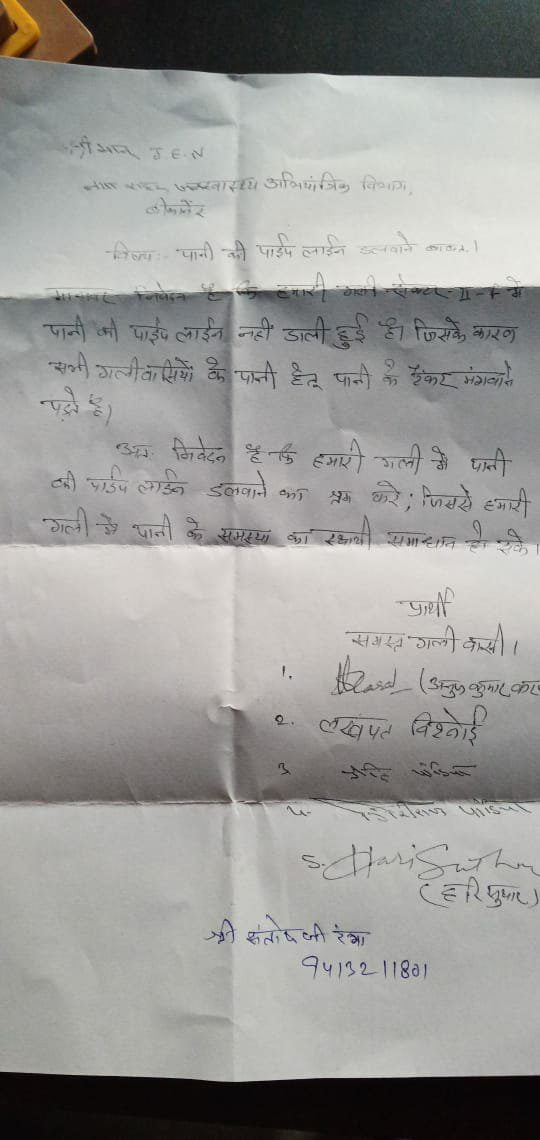 श्रीमान J.E.N
जन स्वास्थ्य अभियांत्रिक विभाग,
बीकानेर
विषय:- पानी की पाईप लाईन डलवाने बाबत।
मान्यवर निवेदन है कि हमारी गली सेक्टर II-F में
पानी की पाईप लाईन नहीं डाली हुई है। जिसके कारण
सभी गलीवासियों के पानी हेतू पानी के टैंकर मंगवाने
पड़ते है।
अतः निवेदन है कि हमारी गली में पानी
की पाईप लाईन डलवाने का श्रम करे; जिससे हमारी
गली में पानी के समस्या का स्थायी समाधान हो सके।
प्रार्थी
समस्त गली वासी।
1. (अनुप कुमार
2. लखपत विश्नोई
3
4.
5. Hari
(हरि सुथार)
श्री संतोष जी रंगा
9413211801